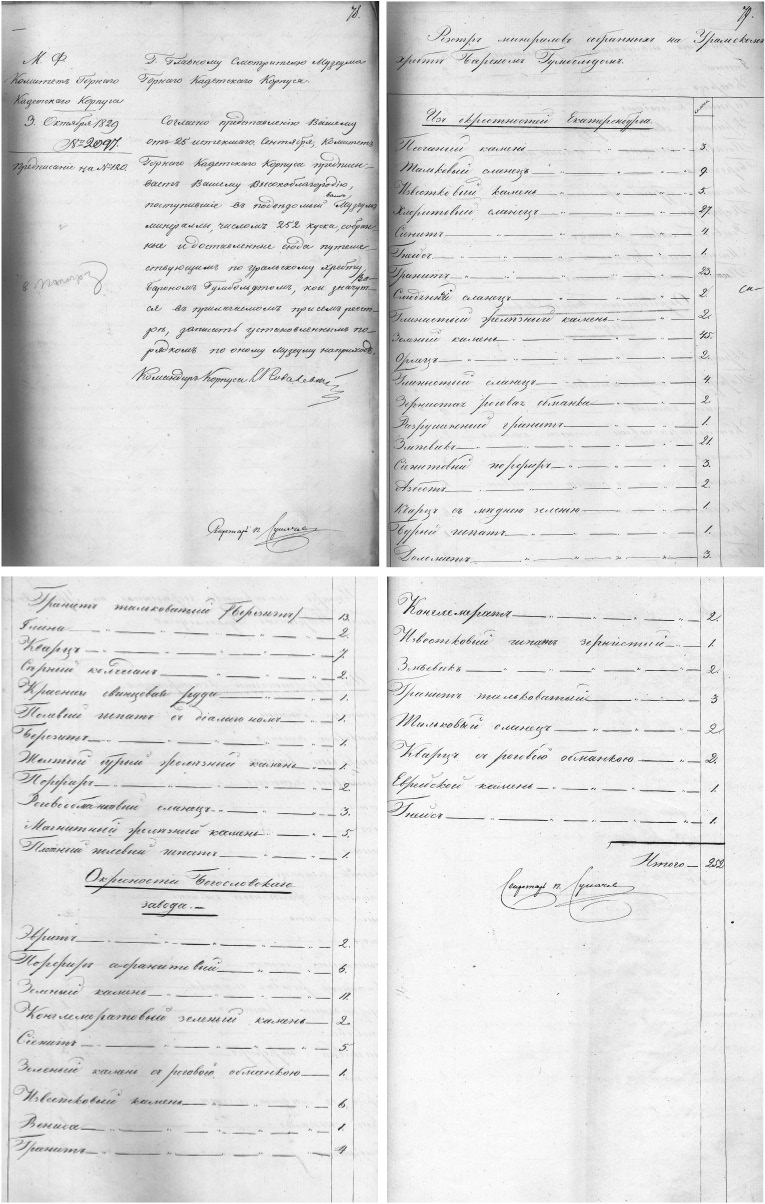 78.
М. Ф.
Комитетъ Горнаго
Кадетскаго Корпуса
3. Октября 1829
№ 2097.
Предписание на № 120.
Г. Главному Смотрителю Музеума
Горнаго Кадетскаго Корпуса
Согласно представлению Вашему
отъ 25 истекшаго Сентября, Комитетъ
Горнаго Кадетскаго Корпуса предписы-
ваетъ Вашему Высокоблагородію,
поступившіе въ Музеумъ
минераллы, числомъ 252 куска, собран-
ные и доставленные сюда путеше-
ствующимъ по Уральскому хребту Ба-
рономъ Гумбольдтомъ, кои значут-
ся въ прилагаемомъ при семъ реест-
рѣ, записать установленнымъ по-
рядкомъ по оному Музеуму на приходъ.
Командиръ Корпуса
Секретарь П.
79.
Реэстръ минераловъ собранныхъ на Уральскомъ
хребтѣ Барономъ Гумбольдомъ.
Изъ окрестностей Екатеринбурга.
Песчаный камень 3.
Тальковый сланецъ 9.
Известковый камень 5.
Хлоритовый сланецъ 27.
Сіенитъ 4.
Гнейсъ 1.
Гранитъ 23.
Слюденый сланецъ 2.
Глинистый желѣзный камень 2.
Зеленый камень 45.
Орлецъ 2.
Глинистый сланецъ 4.
Зернистая роговая обманка 2
Разрушенный гранитъ 1.
Змѣевикъ 21.
Сіенитовый порфиръ 3.
Азбестъ 2.
Кварцъ съ мѣдною зеленью 1.
Бурый шпатъ 1.
Доломитъ 3.
Гранитъ тальковатый /Березитъ/ 13.
Глина 2.
Кварцъ 7
Сѣрный колчеданъ 2.
Красная свинцовая руда 1.
Полевый шпатъ съ діалагономъ 1.
Березитъ 1.
Желтый бурый желѣзный камень 1.
Порфиръ 2.
Роговообманковый сланецъ 3.
Магнитный желѣзный камень 5.
Плотный полевый шпатъ 1.
Окресности Богословскаго
завода.
Эвритъ 2.
Порфиръ афанитовый 6.
Зеленый камень 11.
Конглемератовый зеленый камень 2
Сіенитъ 5.
Зеленый камень съ роговою обманкою 1.
Известковый камень 6
Вениса 1.
Гранитъ 4
Конглемератъ 2.
Известковый шпатъ зернистый 1.
Змѣевикъ 2.
Гранитъ тальковатый 3
Тальковый сланецъ 2
Кварцъ съ роговою обманкою 2.
Еврейской камень 1
Гнейсъ 1.
Итого 252
Секретарь П.